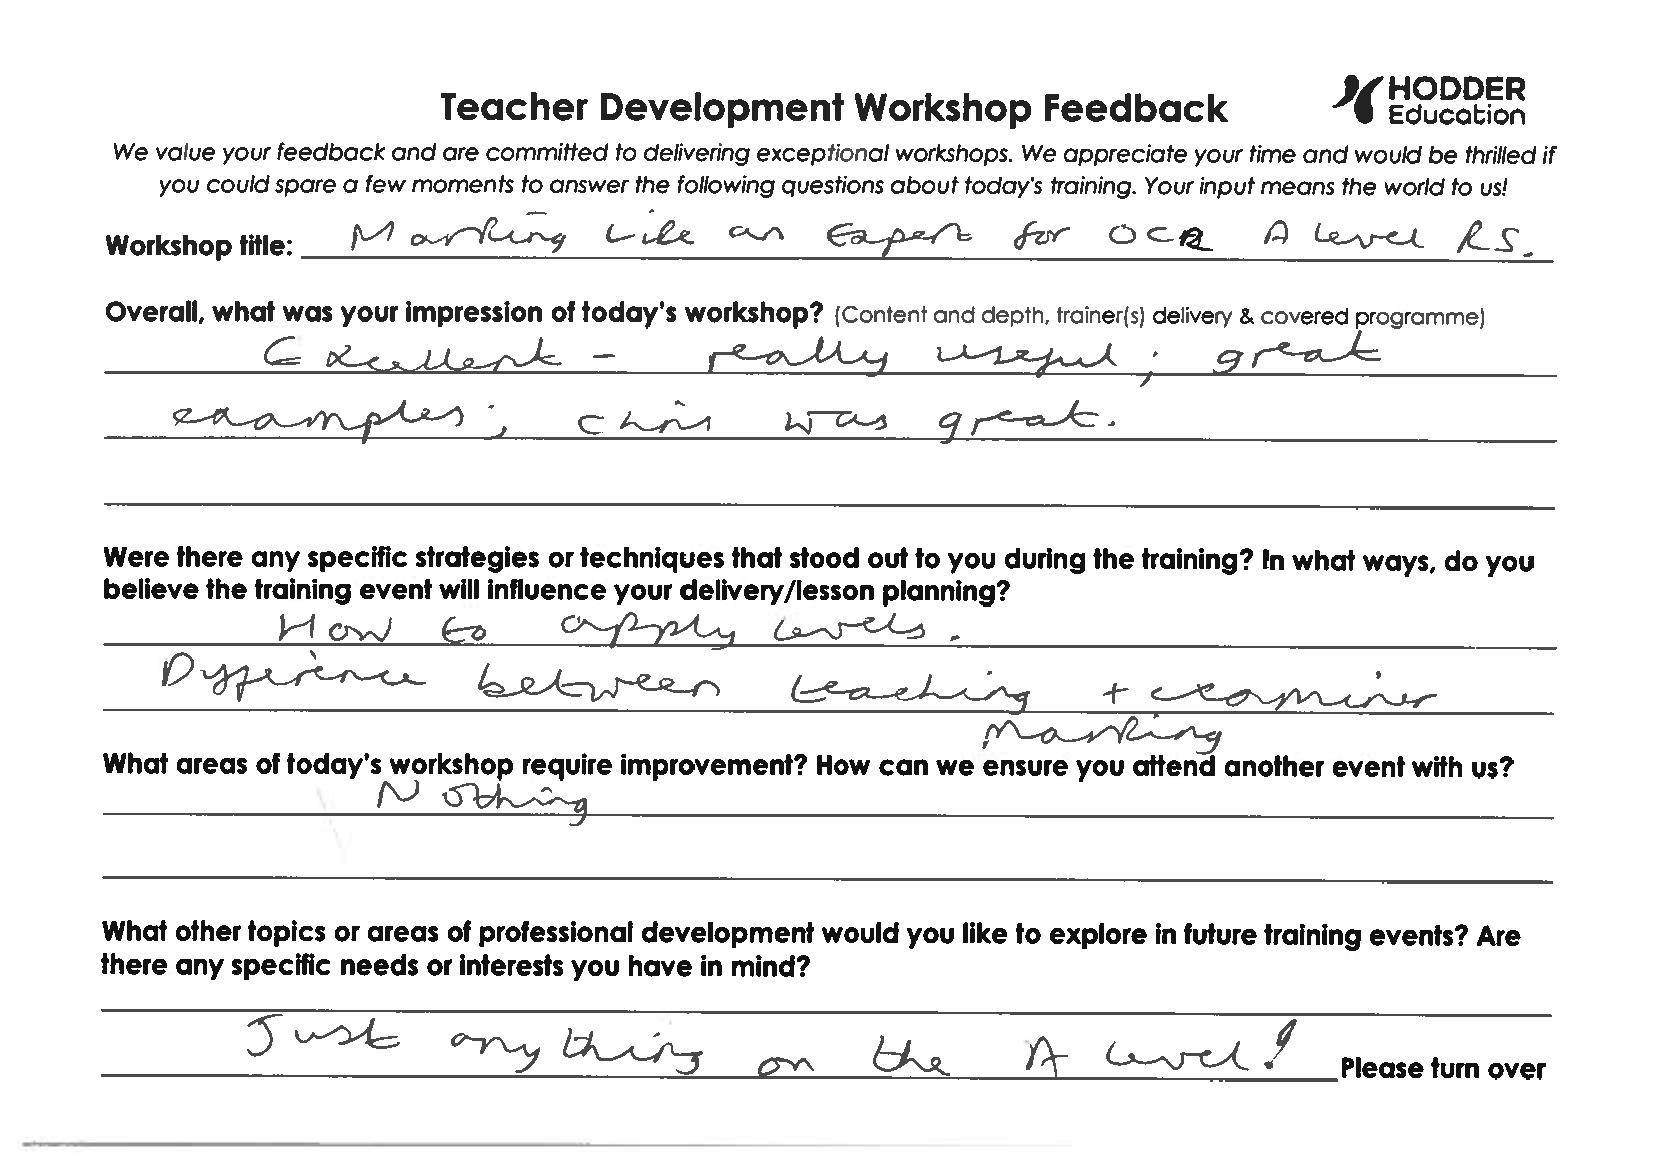 Teacher Development Workshop Feedback
HODDER
Education
We value your feedback and are committed to delivering exceptional workshops. We appreciate your time and would be thrilled if
you could spare a few moments to answer the following questions about today's training. Your input means the world to us!
Workshop title: Marking Like an Expert for OCR A Level RS.
Overall, what was your impression of today's workshop? (Content and depth, trainer(s) delivery & covered programme)
Excellent - really useful; great
examples; Chris was great.
Were there any specific strategies or techniques that stood out to you during the training? In what ways, do you
believe the training event will influence your delivery/lesson planning?
How to apply levels.
Difference between teaching + examiner
marking
What areas of today's workshop require improvement? How can we ensure you attend another event with us?
Nothing
What other topics or areas of professional development would you like to explore in future training events? Are
there any specific needs or interests you have in mind?
Just anything on the A Level!
Please turn over